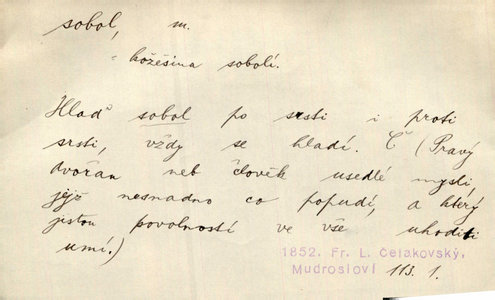 sobol, m.
= kožešina sobolí.
Hlaď sobol po srsti i proti
srsti, vždy se hladí. Č (Pravý
dvořan neb člověk usedlé mysli,
jejž nesnadno co popudí, a který
jistou povolností ve vše uhoditi
umí.)
1852. Fr. L. Čelakovský,
Mudrosloví 113. 1.